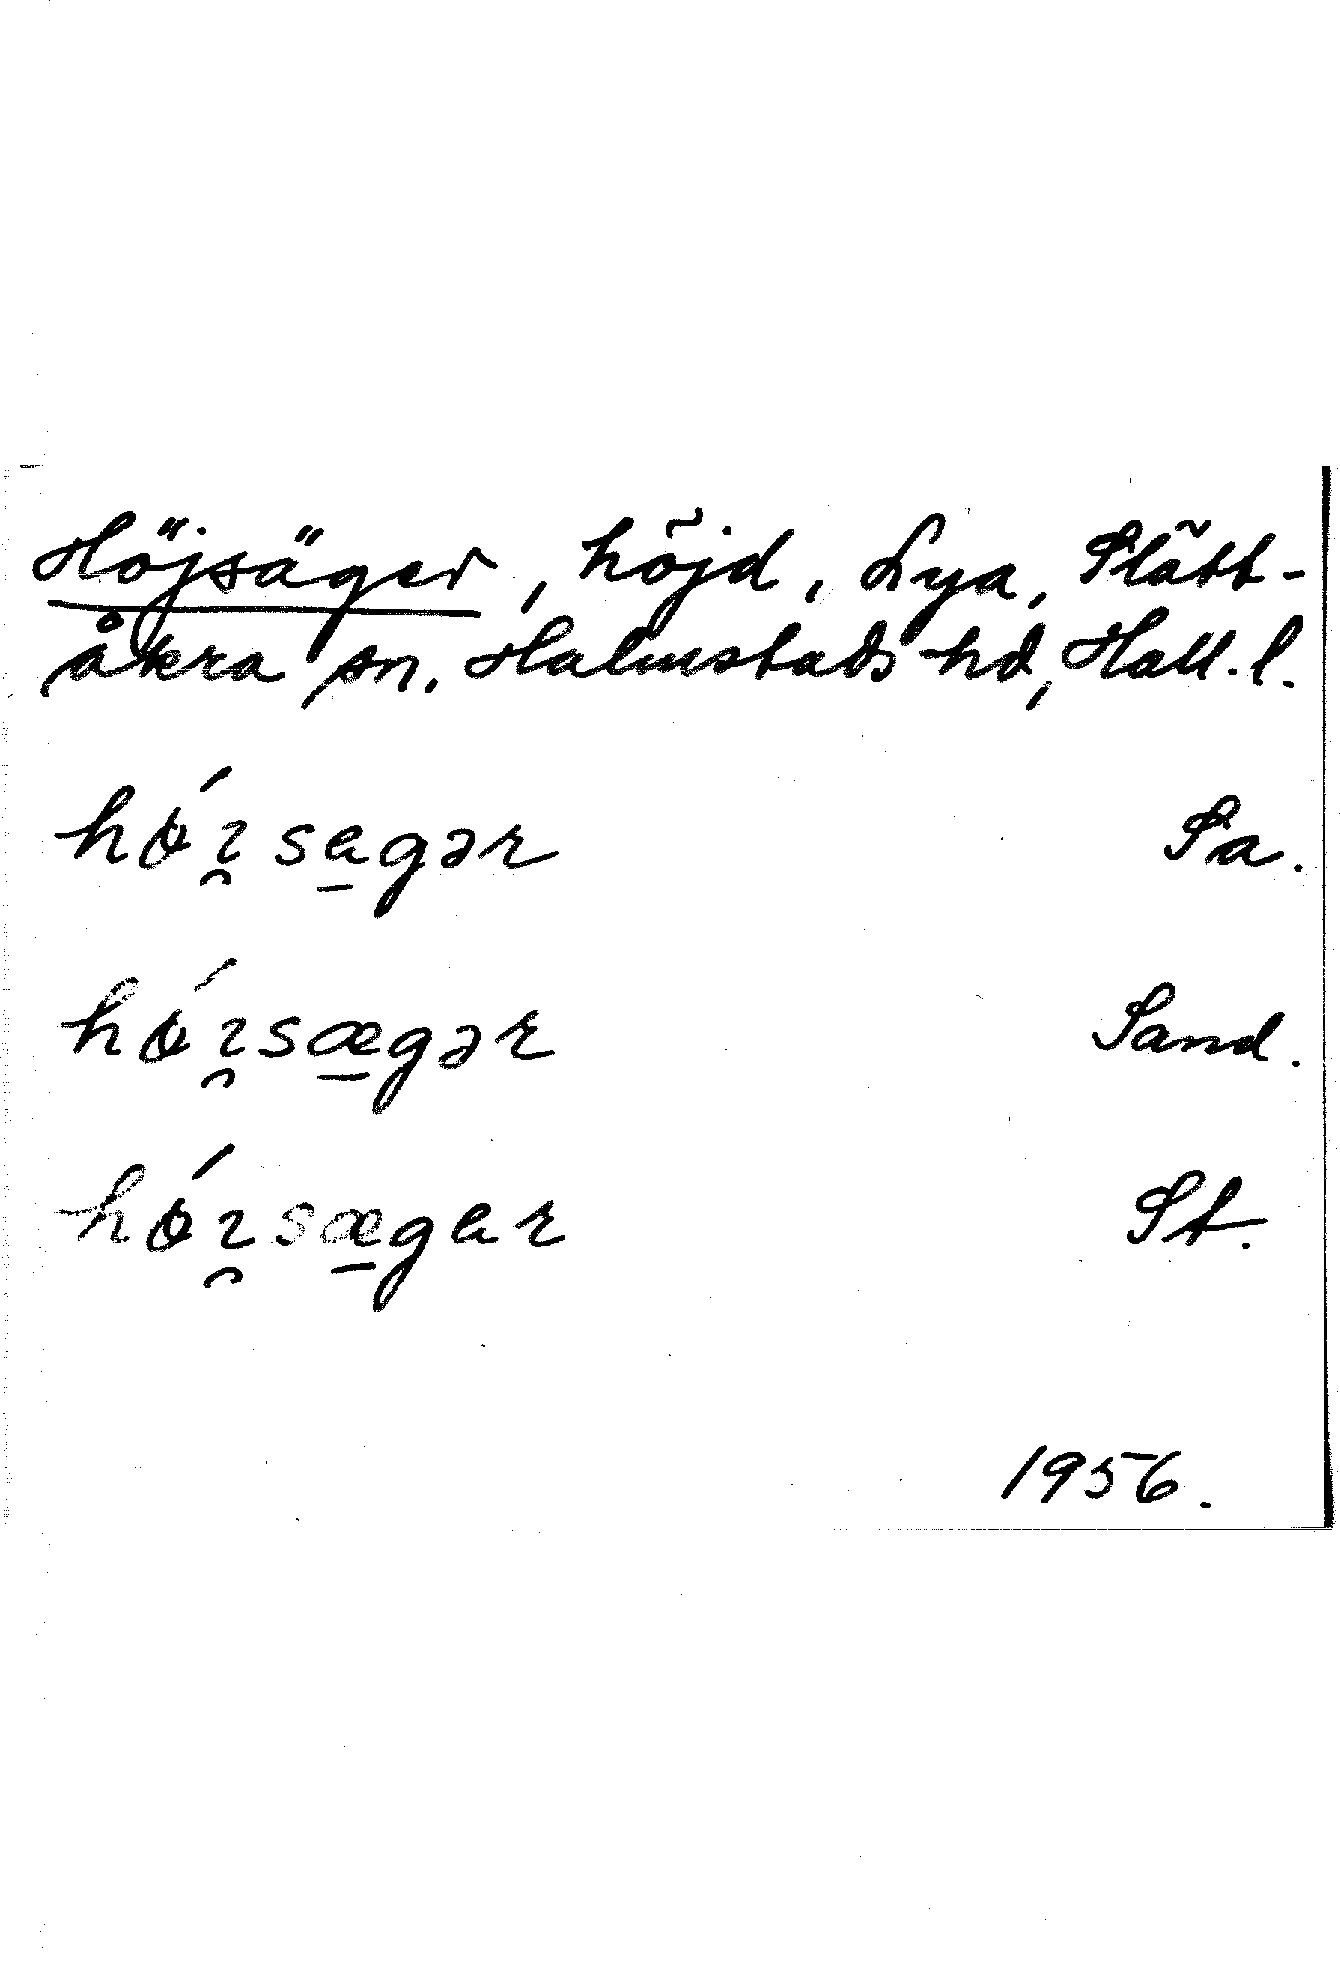 Höjsäger, höjd, Lya, Slätt-
åkra sn. Halmstads hd, Hall. l.
hǿɪ̯sa̱gər Sa.
hǿɪ̯sæ̱gər Sand.
hǿɪ̯sæ̱gar St.
1956.